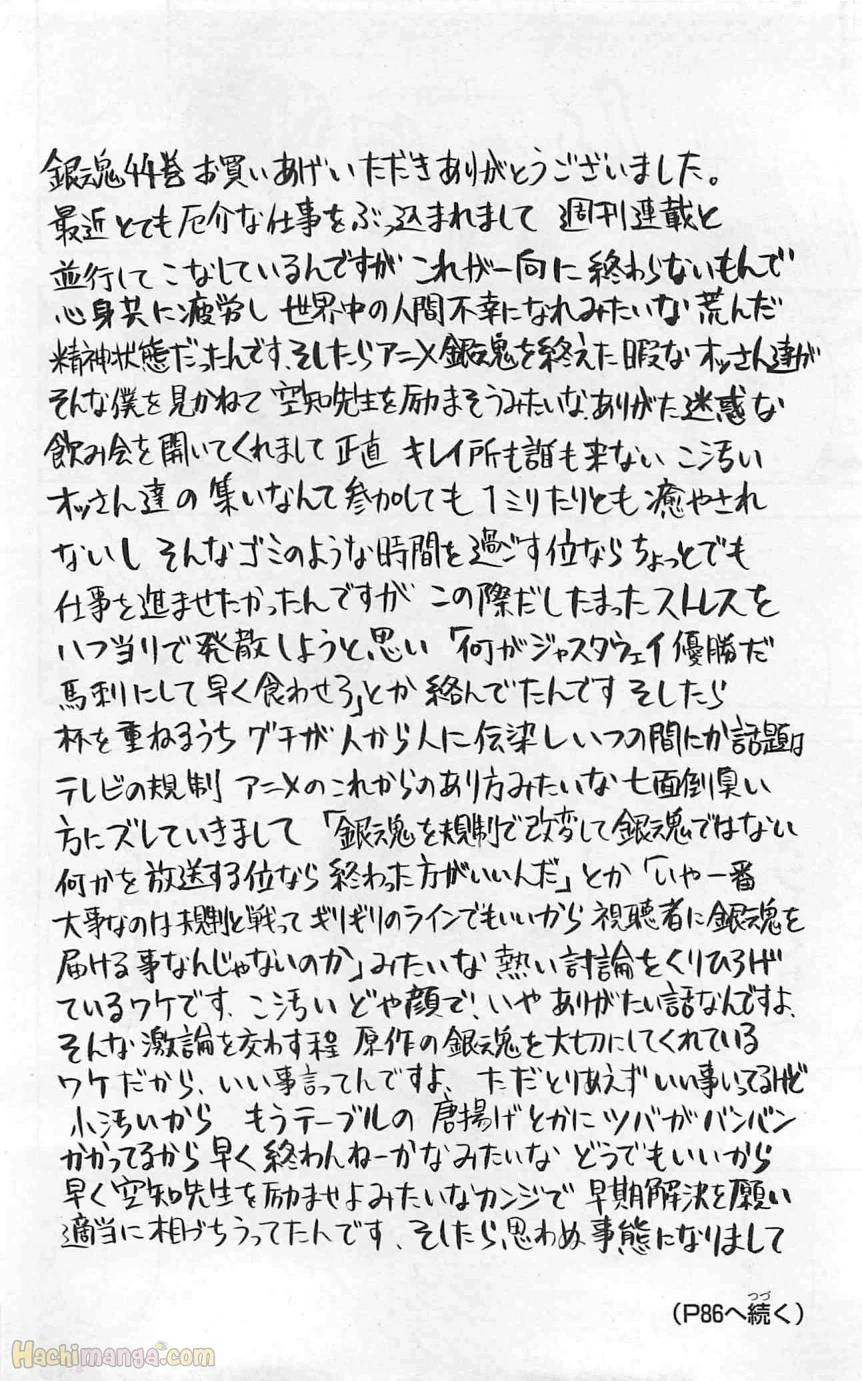 銀魂44巻 お買いあげいただきありがとうございました。
最近 とても厄介な仕事をぶっ込まれまして 週刊連載と
並行して こなしているんですが これが一向に終わらないもんで
心身共に疲労し 世界中の人間不幸になれみたいな 荒んだ
精神状態だったんです、そしたらアニメ銀魂を終えた暇なオッさん達が
そんな僕を見かねて 空知先生を励まそうみたいな、ありがた迷惑な
飲み会を開いてくれまして 正直 キレイ所も誰も来ない こ汚い
オッさん達の集いなんて参加しても 1ミリたりとも癒やされ
ないし そんなゴミのような時間を過ごす位ならちょっとでも
仕事を進ませたかったんですが この際だしたまったストレスを
いつ当りで発散しようと思い「何がジャスタウェイ優勝だ
馬刺にして早く食わせろ」とか 絡んでたんです そしたら
杯を重ねるうち グチが人から人に伝染しいつの間にか話題は
テレビの規制 アニメのこれからのあり方みたいな七面倒臭い
方にズレていきまして 「銀魂を規制で改変して銀魂ではない
何かを放送する位なら 終わった方がいいんだ」とか「いや一番
大事なのは規制と戦って ギリギリのラインでもいいから 視聴者に銀魂を
届ける事なんじゃないのか」みたいな 熱い討論をくりひろげ
ているワケです、こ汚い どや顔で!、いや ありがたい話なんですよ、
そんな激論を交わす程 原作の銀魂を大切にしてくれている
ワケだから、いい事言ってんですよ、ただとりあえずいい事いってるけど
小汚いから もうテーブルの 唐揚げとかにツバがバンバン
かかってるから早く終わんねーかなみたいな どうでもいいから
早く空知先生を励ませよみたいなカンジで 早期解決を願い
適当に相づちうってたんです、そしたら思わぬ事態になりまして
(P86へ続く)
つづ
Hachimanga.com